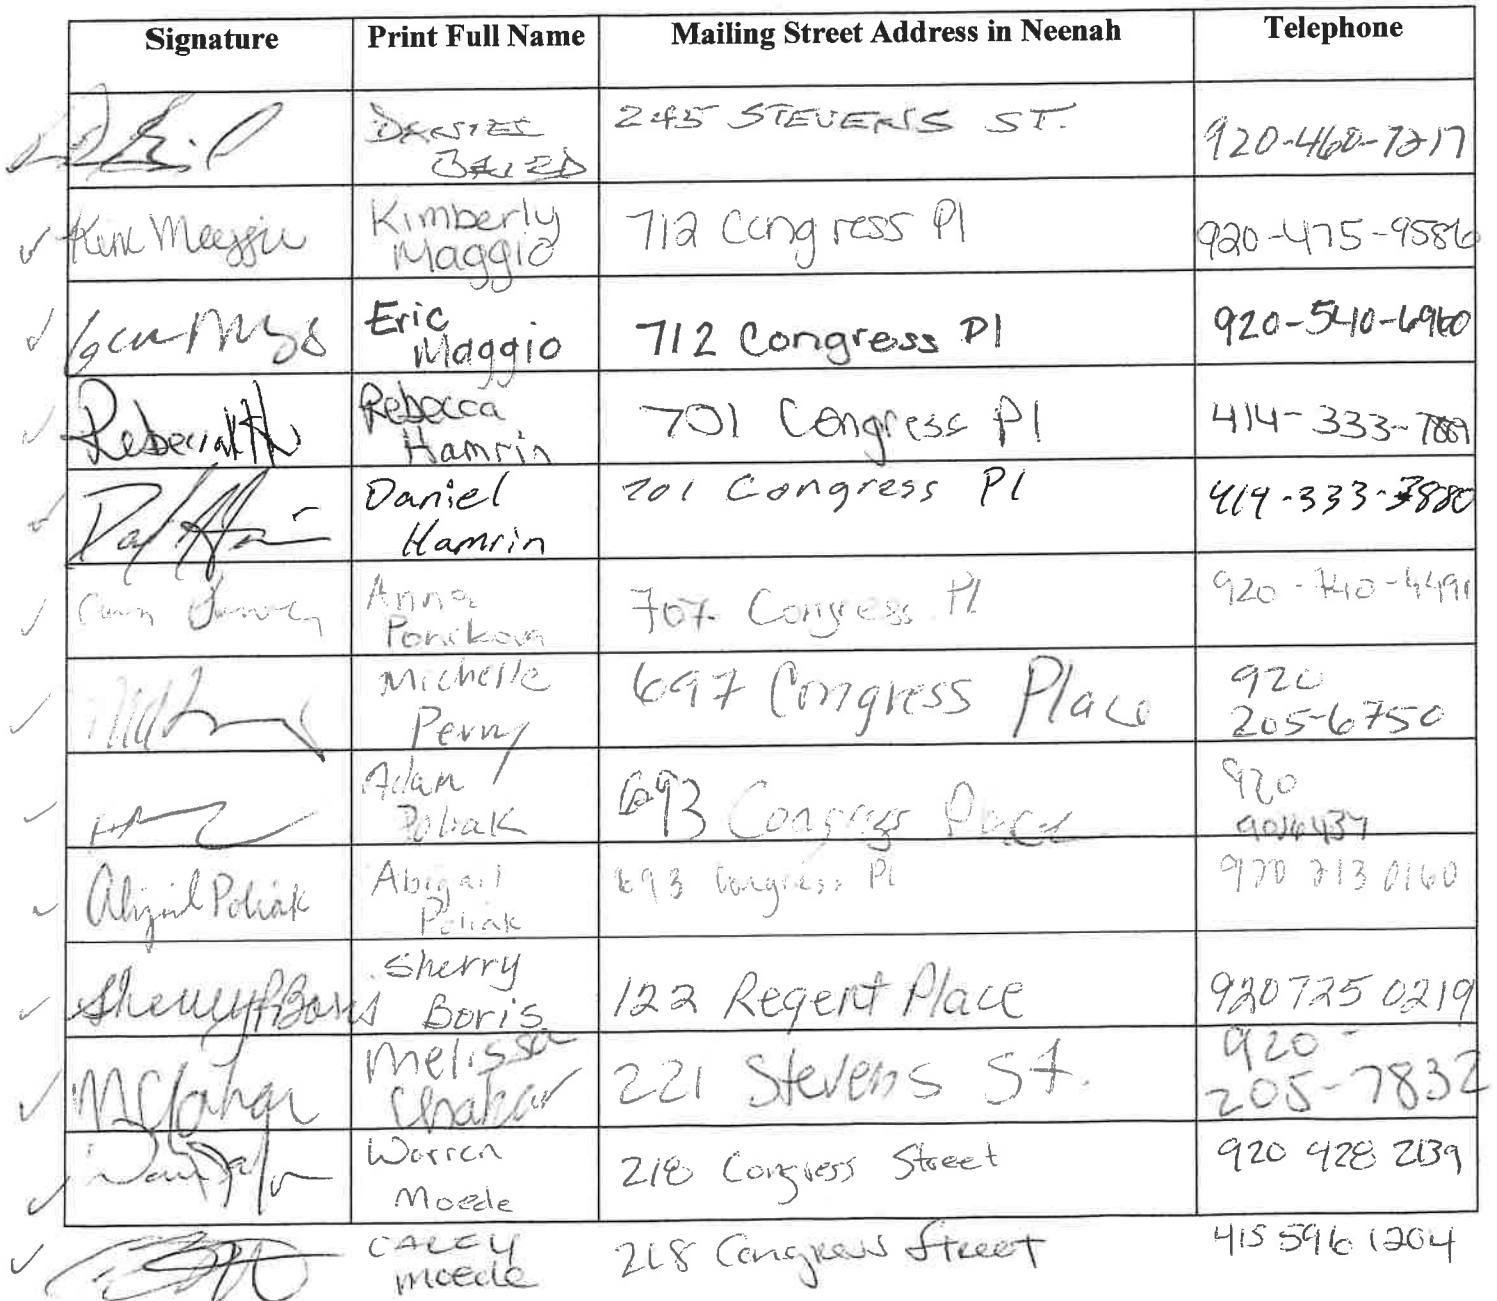 Signature Print Full Name Mailing Street Address in Neenah Telephone
DANIEL BAIRD 245 STEVENS ST. 920-460-7217
Kim Maggio Kimberly Maggio 712 Congress Pl 920-475-9586
Eric Maggio 712 Congress Pl 920-540-6960
Rebecca Hamrin 701 Congress Pl 414-333-
Daniel Hamrin 701 Congress Pl 414-333-3880
Anna 707 Congress Pl 920-740-4491
Michelle Perry 697 Congress Place 920 205-6750
Adam Poliak 693 Congress Place 920 9016437
Abigail Poliak Abigail Poliak 693 Congress Pl 920 213 0160
Sherry Boris Sherry Boris 122 Regent Place 920 725 0219
Melissa 221 Stevens St. 920-205-7832
Warren Moede 218 Congress Street 920 428 2139
CALEY Moede 218 Congress Street 415 596 1204